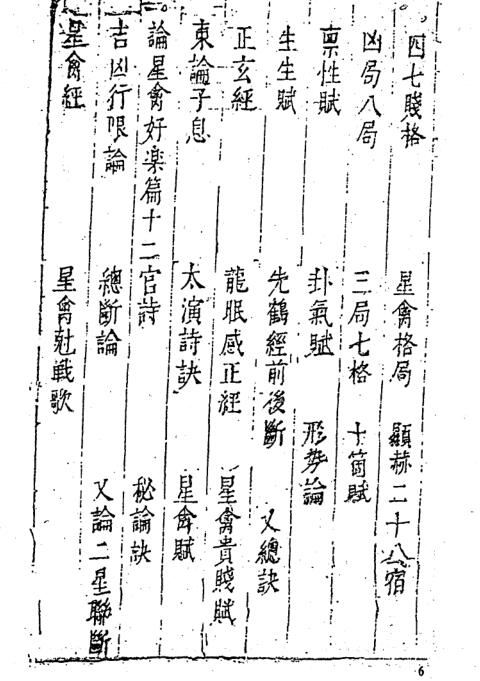 四七賤格 星禽格局 顯赫二十八宿
凶局八局 三局七格 十箇賦
禀性賦 卦氣賦 形勢論
生生賦 先鶴經前後斷 又總訣
正玄經 龍眠感正経 星禽貴賤賦
東論子息 太演詩訣 星禽賦
論星禽好楽篇十二官詩 秘論訣
吉凶行限論 總斷論 又論二星聯斷
星禽經 星禽尅戦歌
6